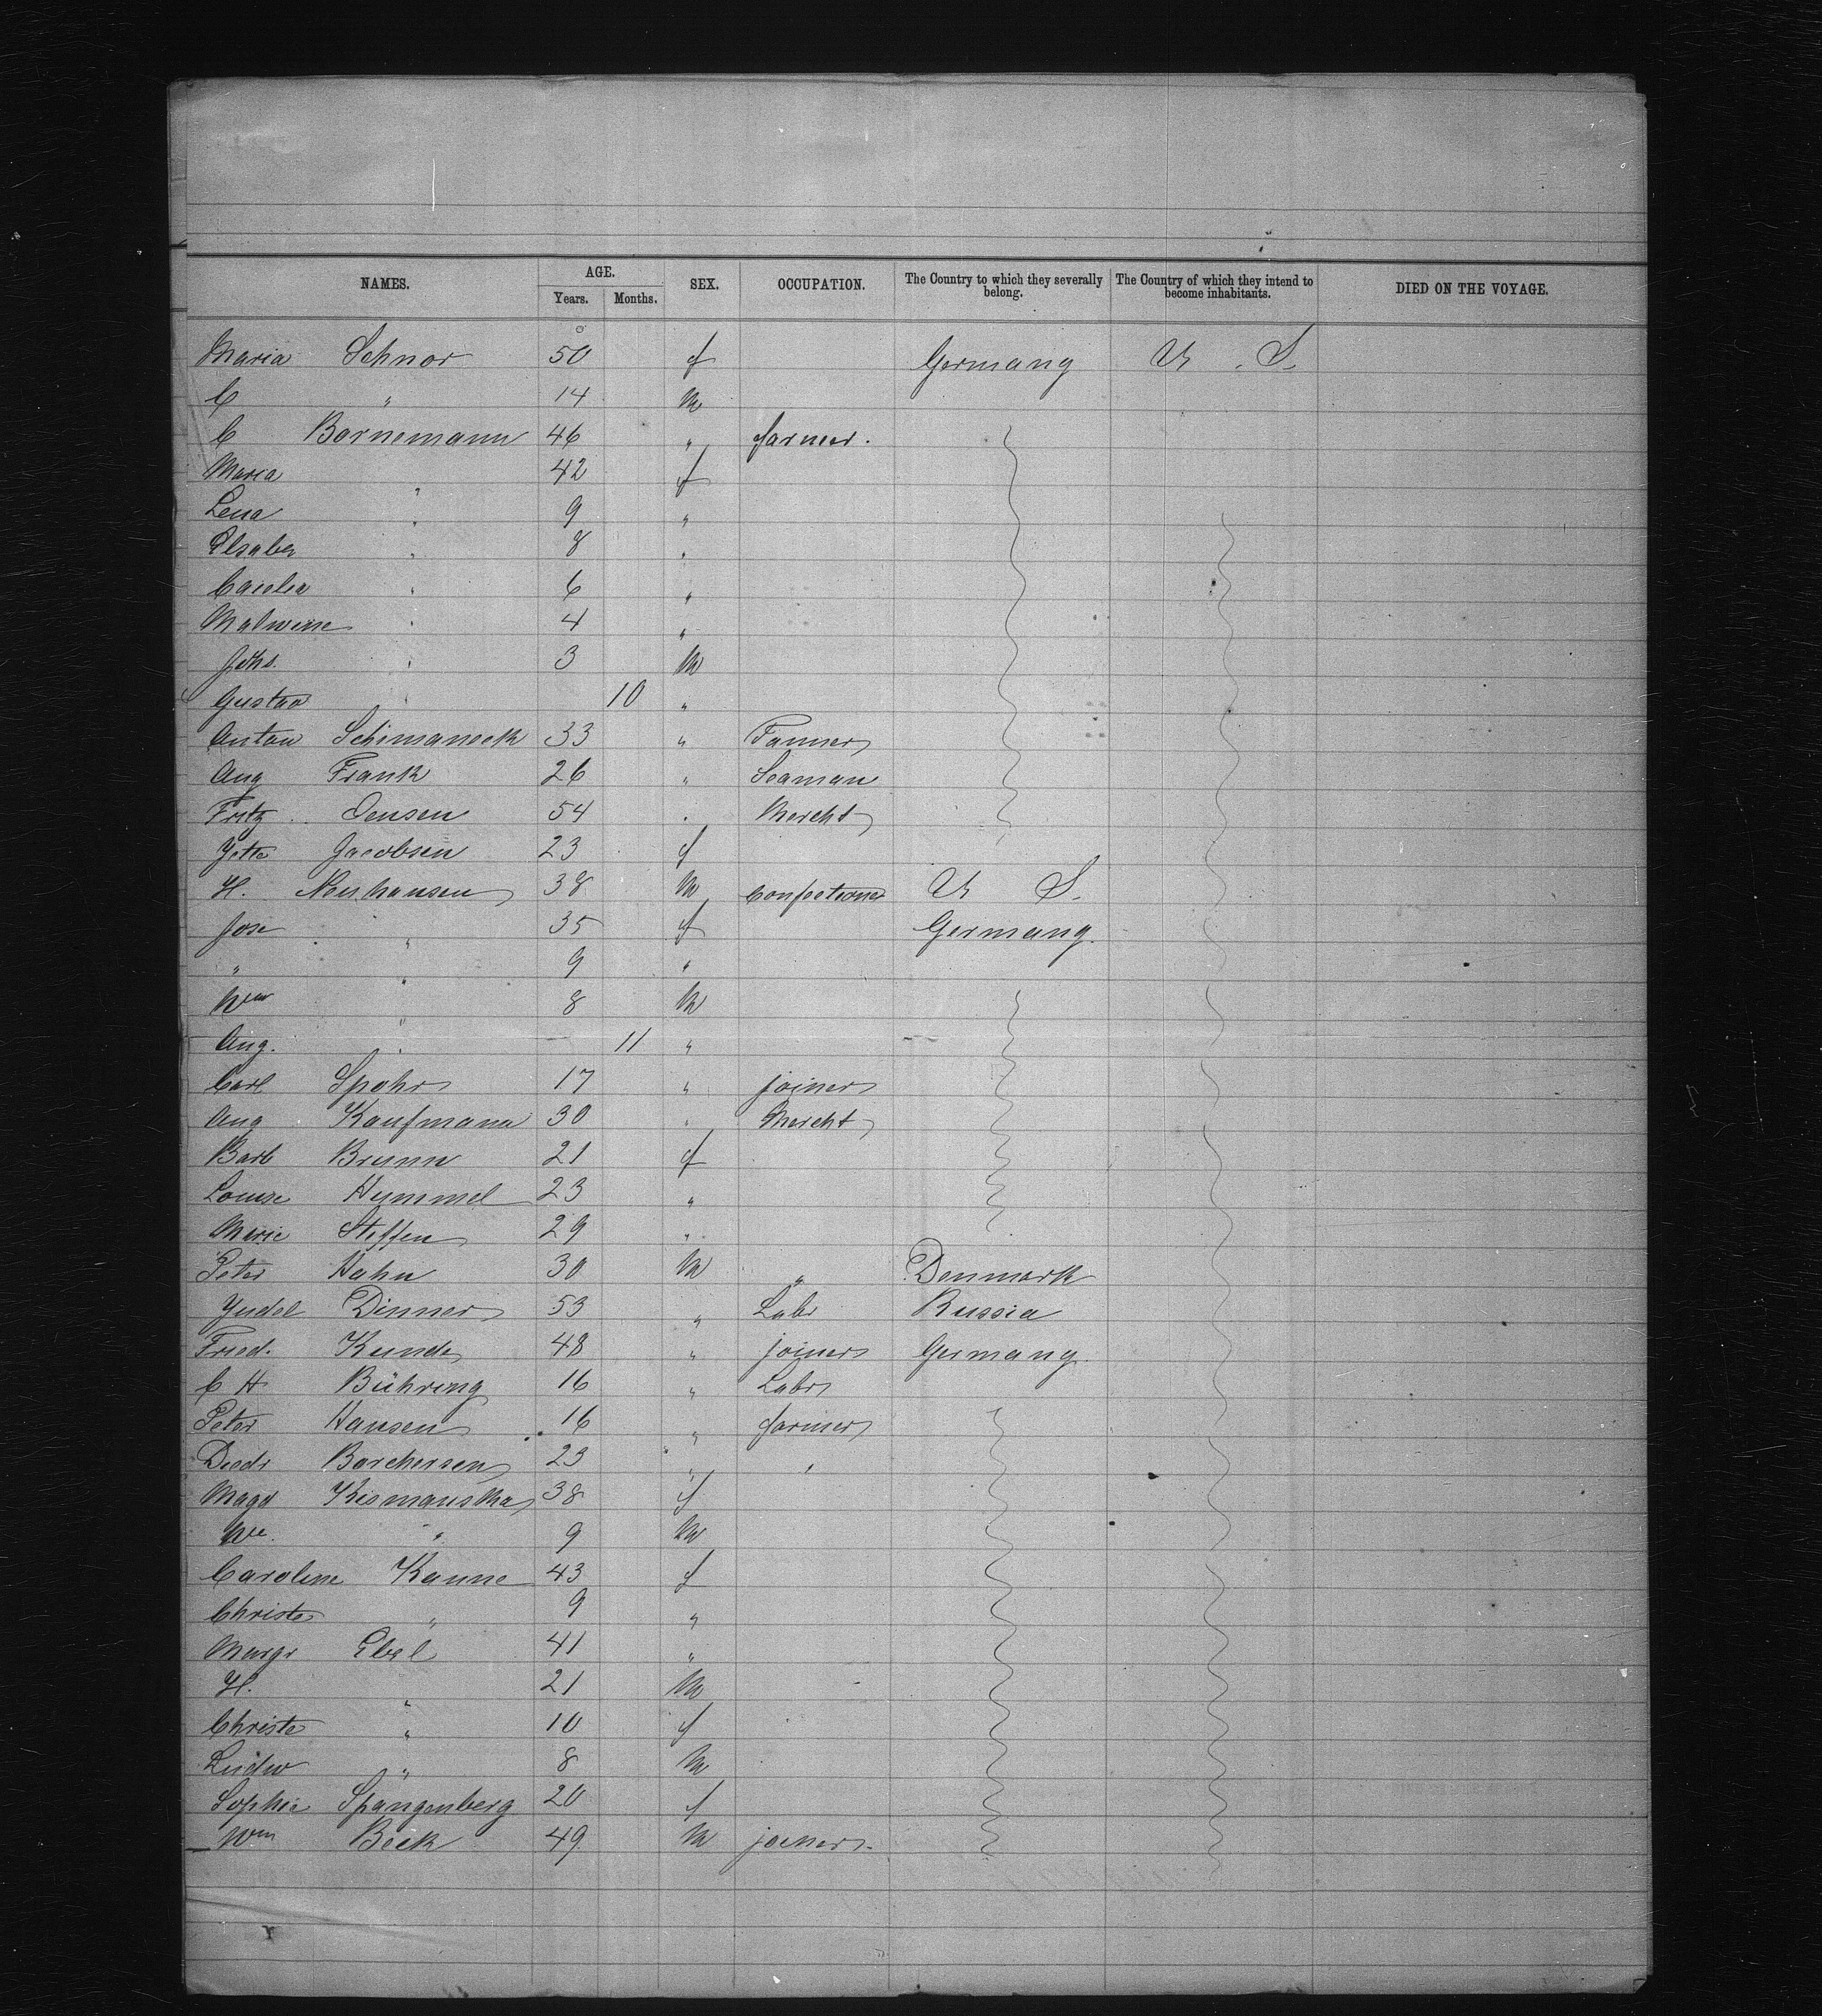 NAMES. AGE. SEX. OCCUPATION. The Country to which they severally belong. The Country of which they intend to become inhabitants. DIED ON THE VOYAGE.
Years. Months.
Maria Schnor 50 f Germany U. S.
C " 14 M
C Bornemann 46 " farmer.
Maria " 42 f
Lena " 9 "
Elsabe " 8 "
" 6 "
Malwine " 4 "
Johs. " 3 M
Gustav " 10 "
Anton Schimaneck 33 " Farmer
Aug Frank 26 " Seaman
Fritz Jensen 54 " Mercht
Jette Jacobsen 23 f
H. Neuhausen 38 M Confectioner U S.
Jose " 35 f Germany.
" " 9 "
Wm " 8 M
Aug. " 11 "
Carl Spohr 17 " joiner
Aug Kaufmann 30 " Mercht
Barb Brunn 21 f
Louise Hummel 23 "
Marie Steffen 29 "
Peter Hahn 30 M " Denmark
Judel Dinner 53 " Labr Russia
Fried. Kunde 48 " joiner Germany.
C H Bühring 16 " Labr
Peter Hansen 16 " farmer
Diedr Borchersen 23 " "
Magd 38 f
" 9 M
Caroline Kanne 43 f
Christe " 9 "
Margr Ebel 41 "
H. " 21 M
Christe " 10 f
Ludw " 8 M
Sophie Spangenberg 20 f
Wm Beek 49 M joiner.